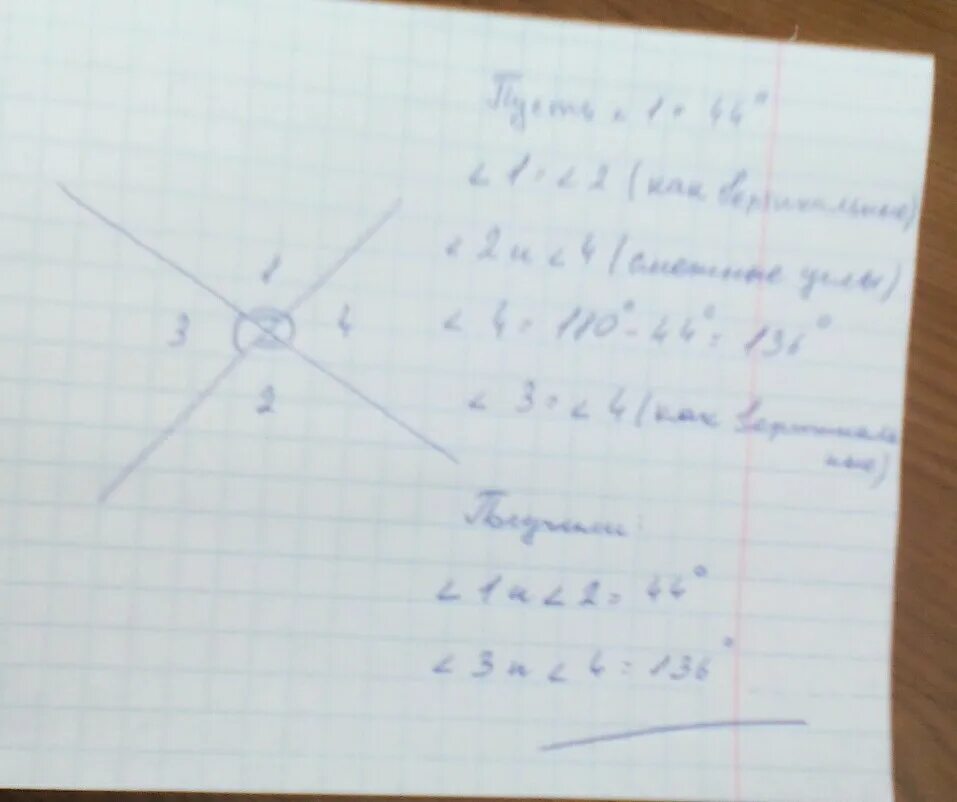 Пусть ∠1 = 44°
∠1 = ∠2 (как вертикальные)
∠2 и ∠4 (смежные углы)
∠4 = 180° - 44° = 136°
∠3 = ∠4 (как вертикаль
ные)
Получили:
∠1 и ∠2 = 44°
∠3 и ∠4 = 136°
1
3
4
2